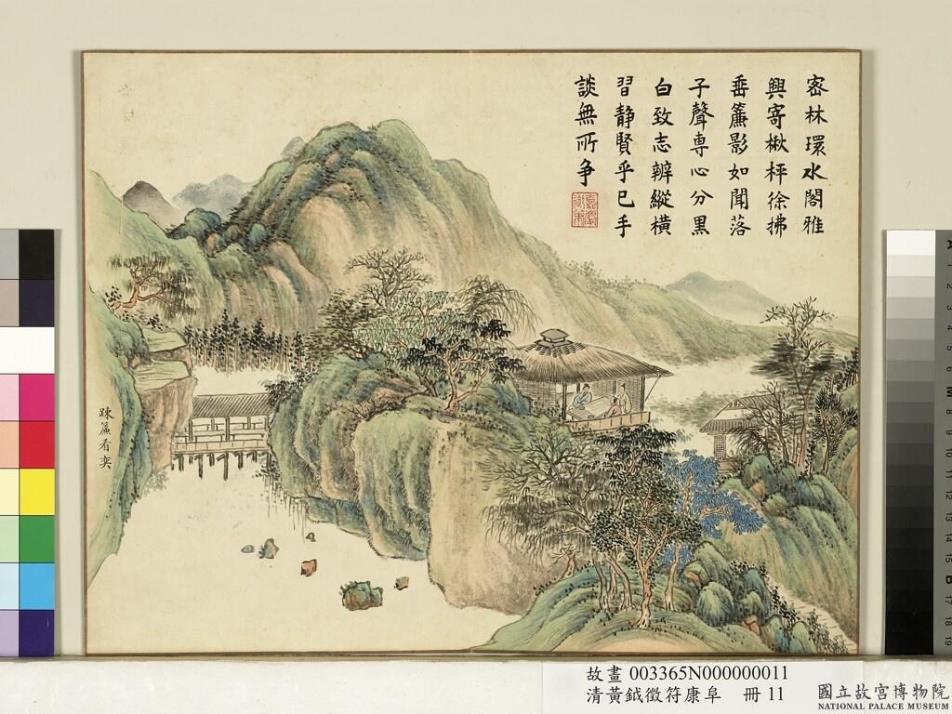 宻林環水閣雅
興寄楸枰徐拂
垂簾影如聞落
子聲專心分黑
白致志辨縱橫
習静賢乎已手
談無所争
疎簾看奕
故畫 003365N000000011
清黃鉞徵符康阜 冊 11
國立故宮博物院
NATIONAL PALACE MUSEUM